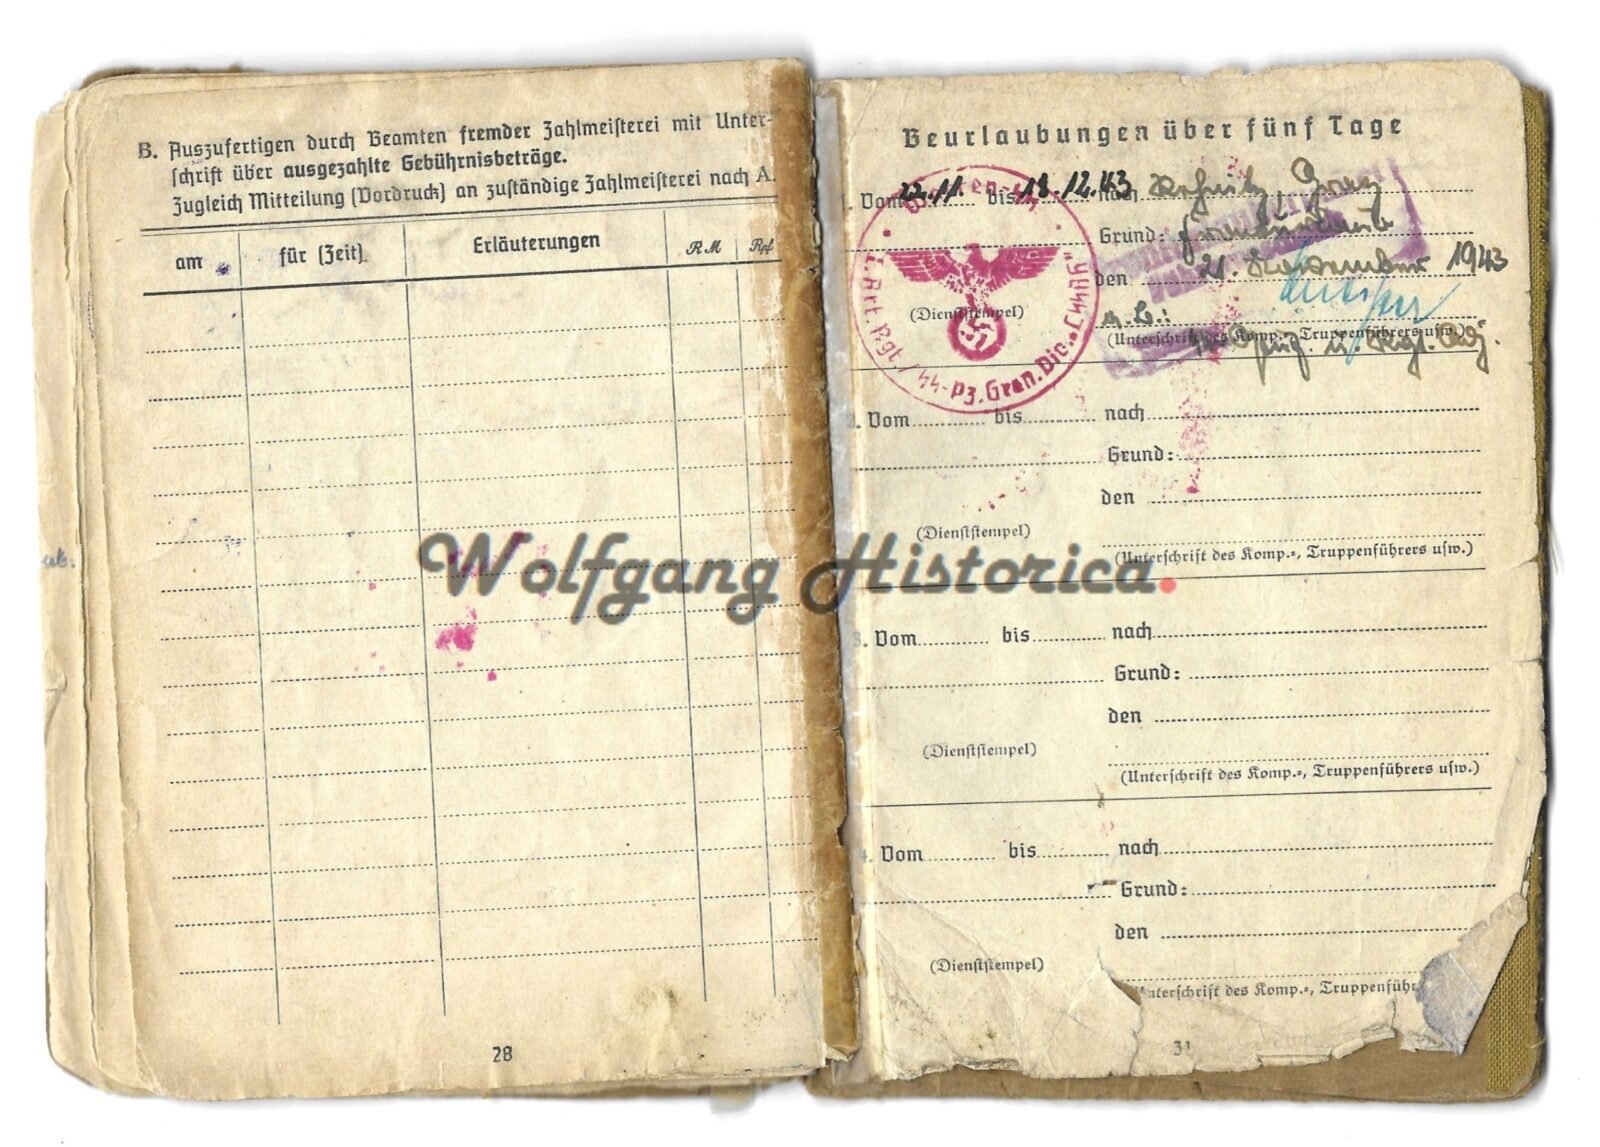 B. Auszufertigen durch Beamten fremder Zahlmeisterei mit Unter-
schrift über ausgezahlte Gebührnisbeträge.
Zugleich Mitteilung (Vordruck) an zuständige Zahlmeisterei nach A.
am für (Zeit) Erläuterungen RM Rpf
28
Beurlaubungen über fünf Tage
Vom 22.11. bis 18.12.43 nach Graz
Grund:
den 21. November 1943
(Dienststempel)
(Unterschrift des Komp.-, Truppenführers usw.)
Waffen-SS
1. Art. Rgt. / SS-Pz. Gran. Div.
2. Vom bis nach
Grund:
den
(Dienststempel)
(Unterschrift des Komp.-, Truppenführers usw.)
Wolfgang Historica.
3. Vom bis nach
Grund:
den
(Dienststempel)
(Unterschrift des Komp.-, Truppenführers usw.)
4. Vom bis nach
Grund:
den
(Dienststempel)
Unterschrift des Komp.-, Truppenführ
31